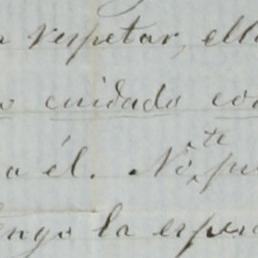 respetar, ell
cuidado co
a él. No te
engo la espe